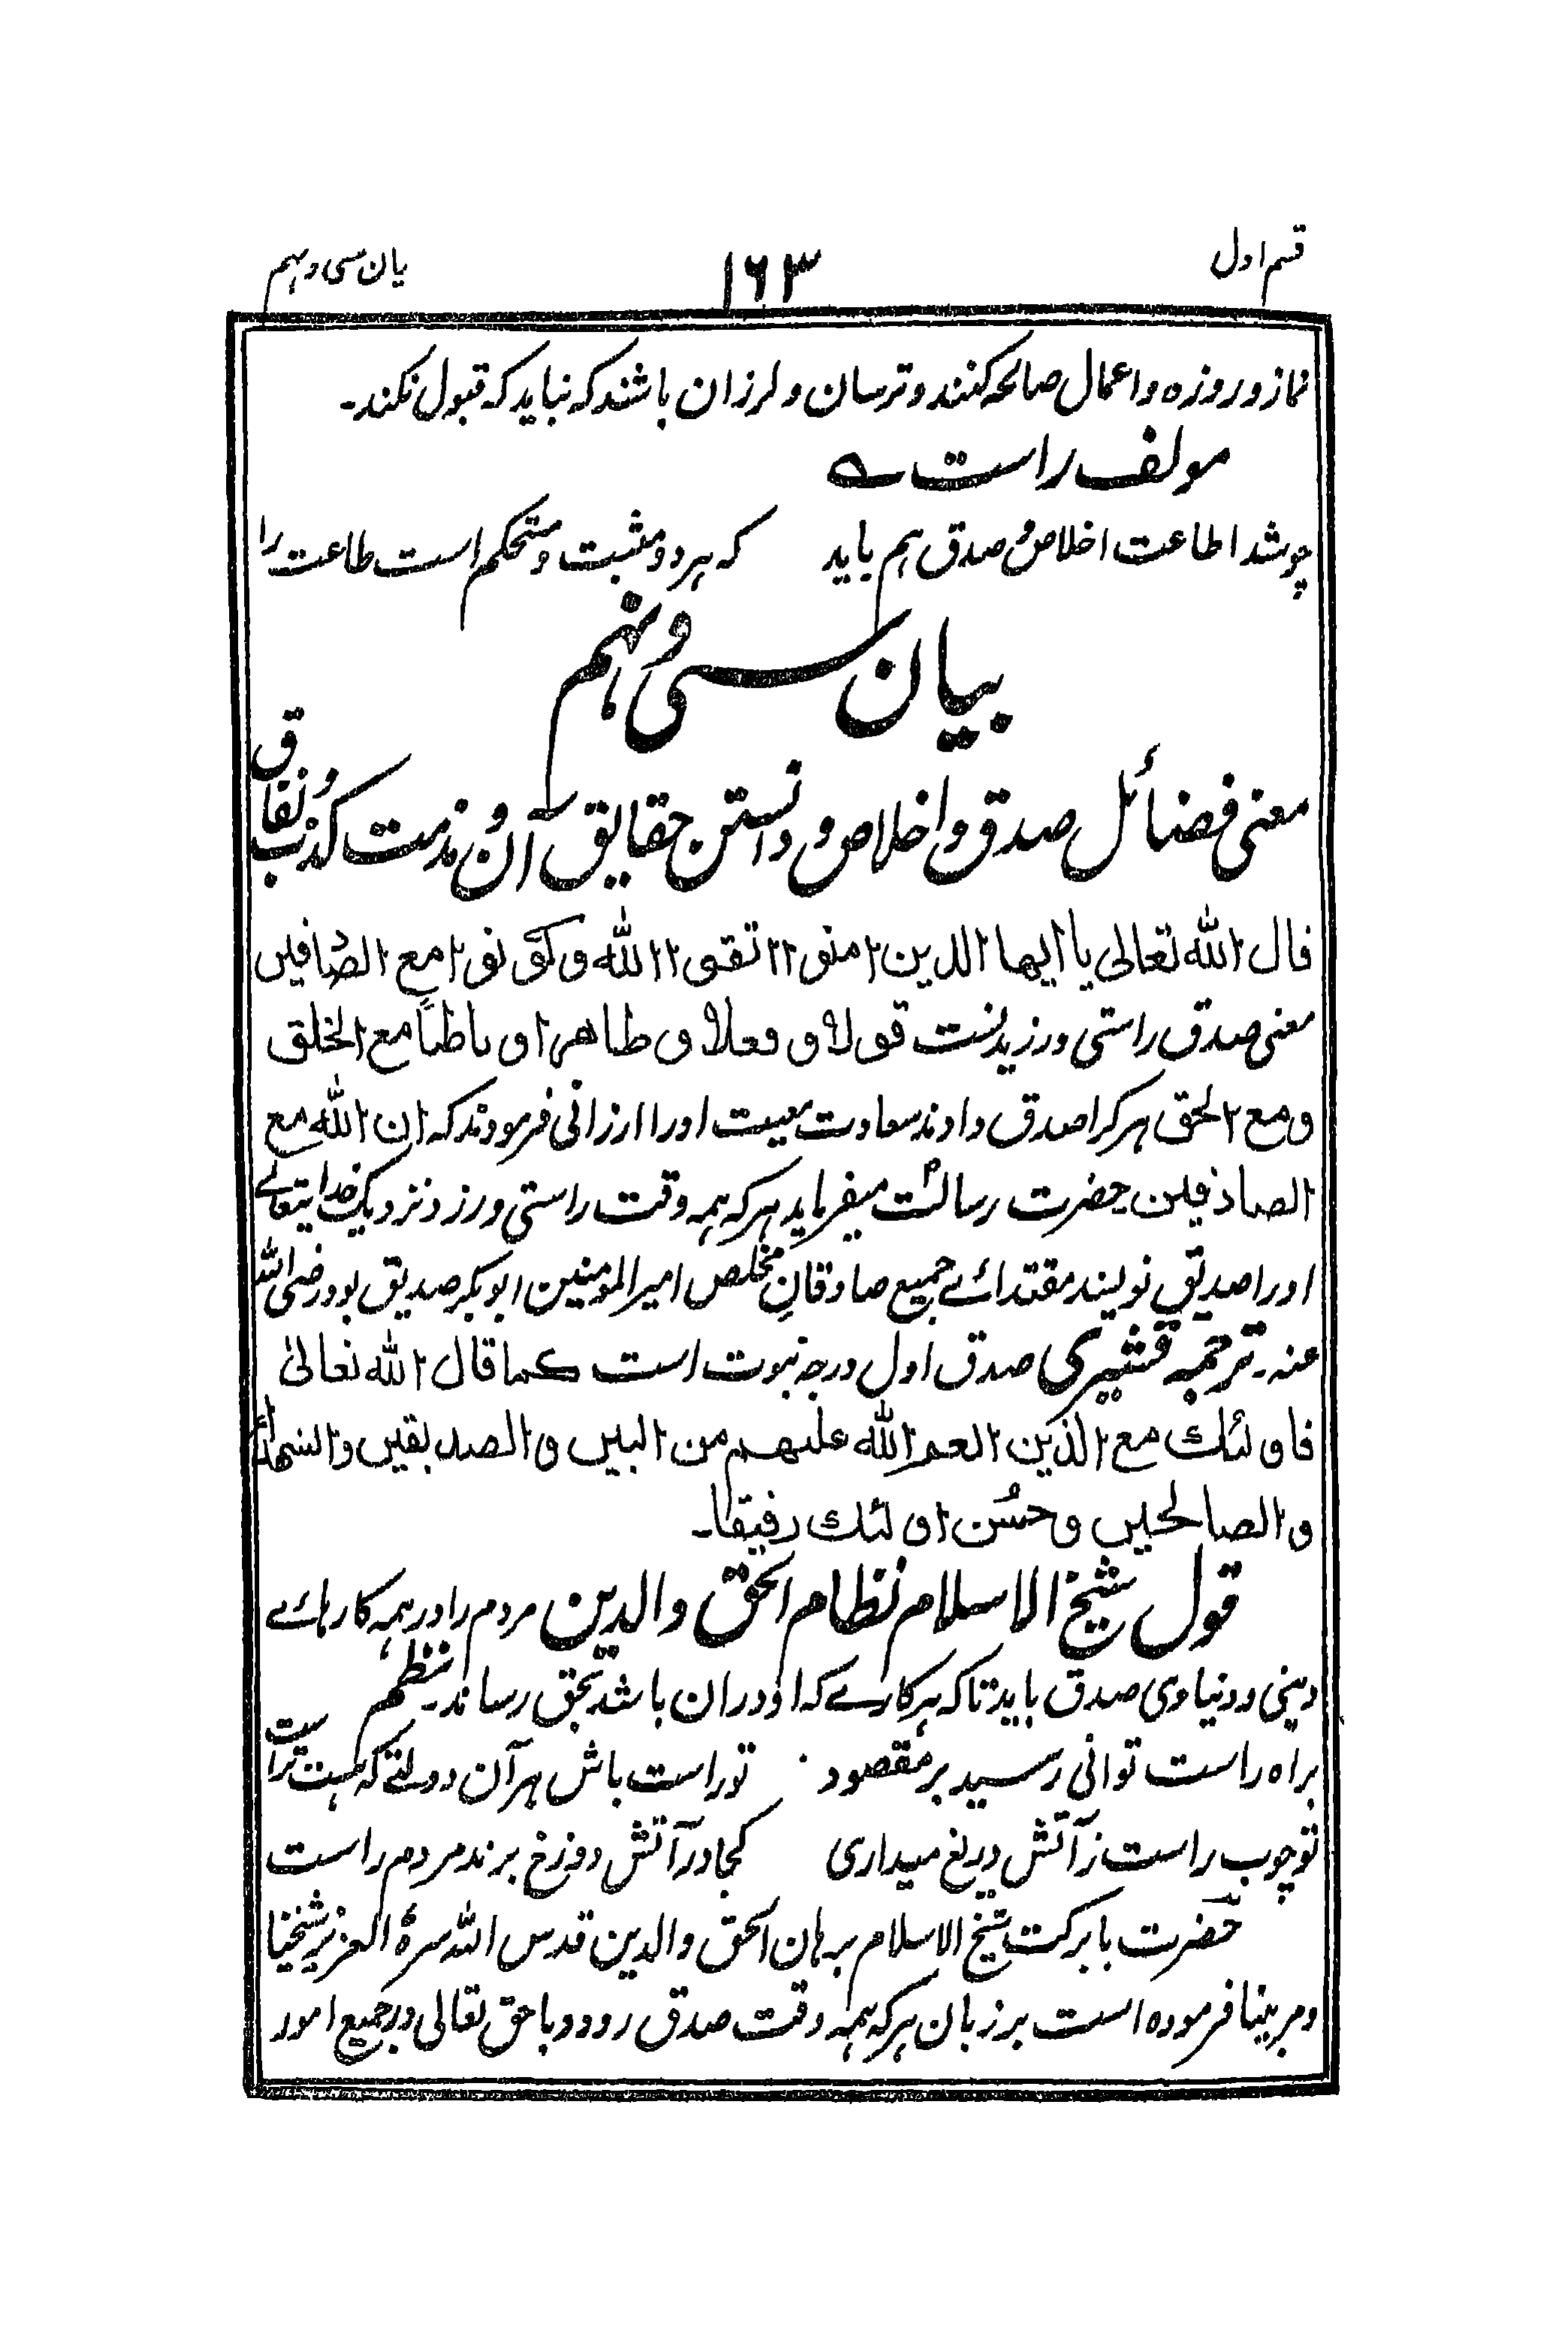 قسم اول
۱۶۳
بیان سی و نہم
نماز و روزہ و اعمال صالحہ کنند و ترسان و لرزان باشند کہ نباید کہ قبول نکند۔
مولف راست ے
چو شد اطاعت اخلاص و صدق ہم باید کہ ہر دو مثبت و متحکم است طاعت را
بیان سی و نہم
معنی فضائل صدق و اخلاص و دانستن حقایق آن و مذمت کذب و نفاق
قال الله تعالی یا ایها الذین امنوا اتقوا الله و کونوا مع الصادقین
معنی صدق راستی ورزیدنست قولا و فعلا و ظاهرا و باطنا مع الخلق
و مع الحق ہر کرا صدق دادند سعادت معیت او را ارزانی فرمودند کہ ان الله مع
الصادقین حضرت رسالتؐ میفرماید ہر کہ ہمہ وقت راستی ورزد نزدیک خدایتعالے
او را صدیق نویسند مقتدائے جمیع صادقانِ مخلص امیر المومنین ابوبکر صدیق بود رضی اللہ
عنہ۔ ترجمہ قشیری صدق اول درجہ نبوت است کما قال الله تعالیٰ
فاولئک مع الذین انعم الله علیهم من النبین و الصدیقین و الشهداء
و الصالحین و حسُن اولئک رفیقا۔
قول شیخ الاسلام نظام الحق والدین مردم را در ہمہ کارہائے
دینی و دنیاوی صدق باید تا کہ ہر کارے کہ او دران باشد بحق رساند۔ نظم
براہ راست توانی رسید بر مقصود تو راست باش ہر آن دولتے کہ ہست تراست
تو چوب راست ز آتش دریغ میداری کجا در آتش دوزخ برند مردم راست
حضرت با برکت شیخ الاسلام برہان الحق والدین قدس اللہ سرہٗ العزیز شیخنا
و مربینا فرمودہ است بر زبان ہر کہ ہمہ وقت صدق رود و با حق تعالی در جمیع امور